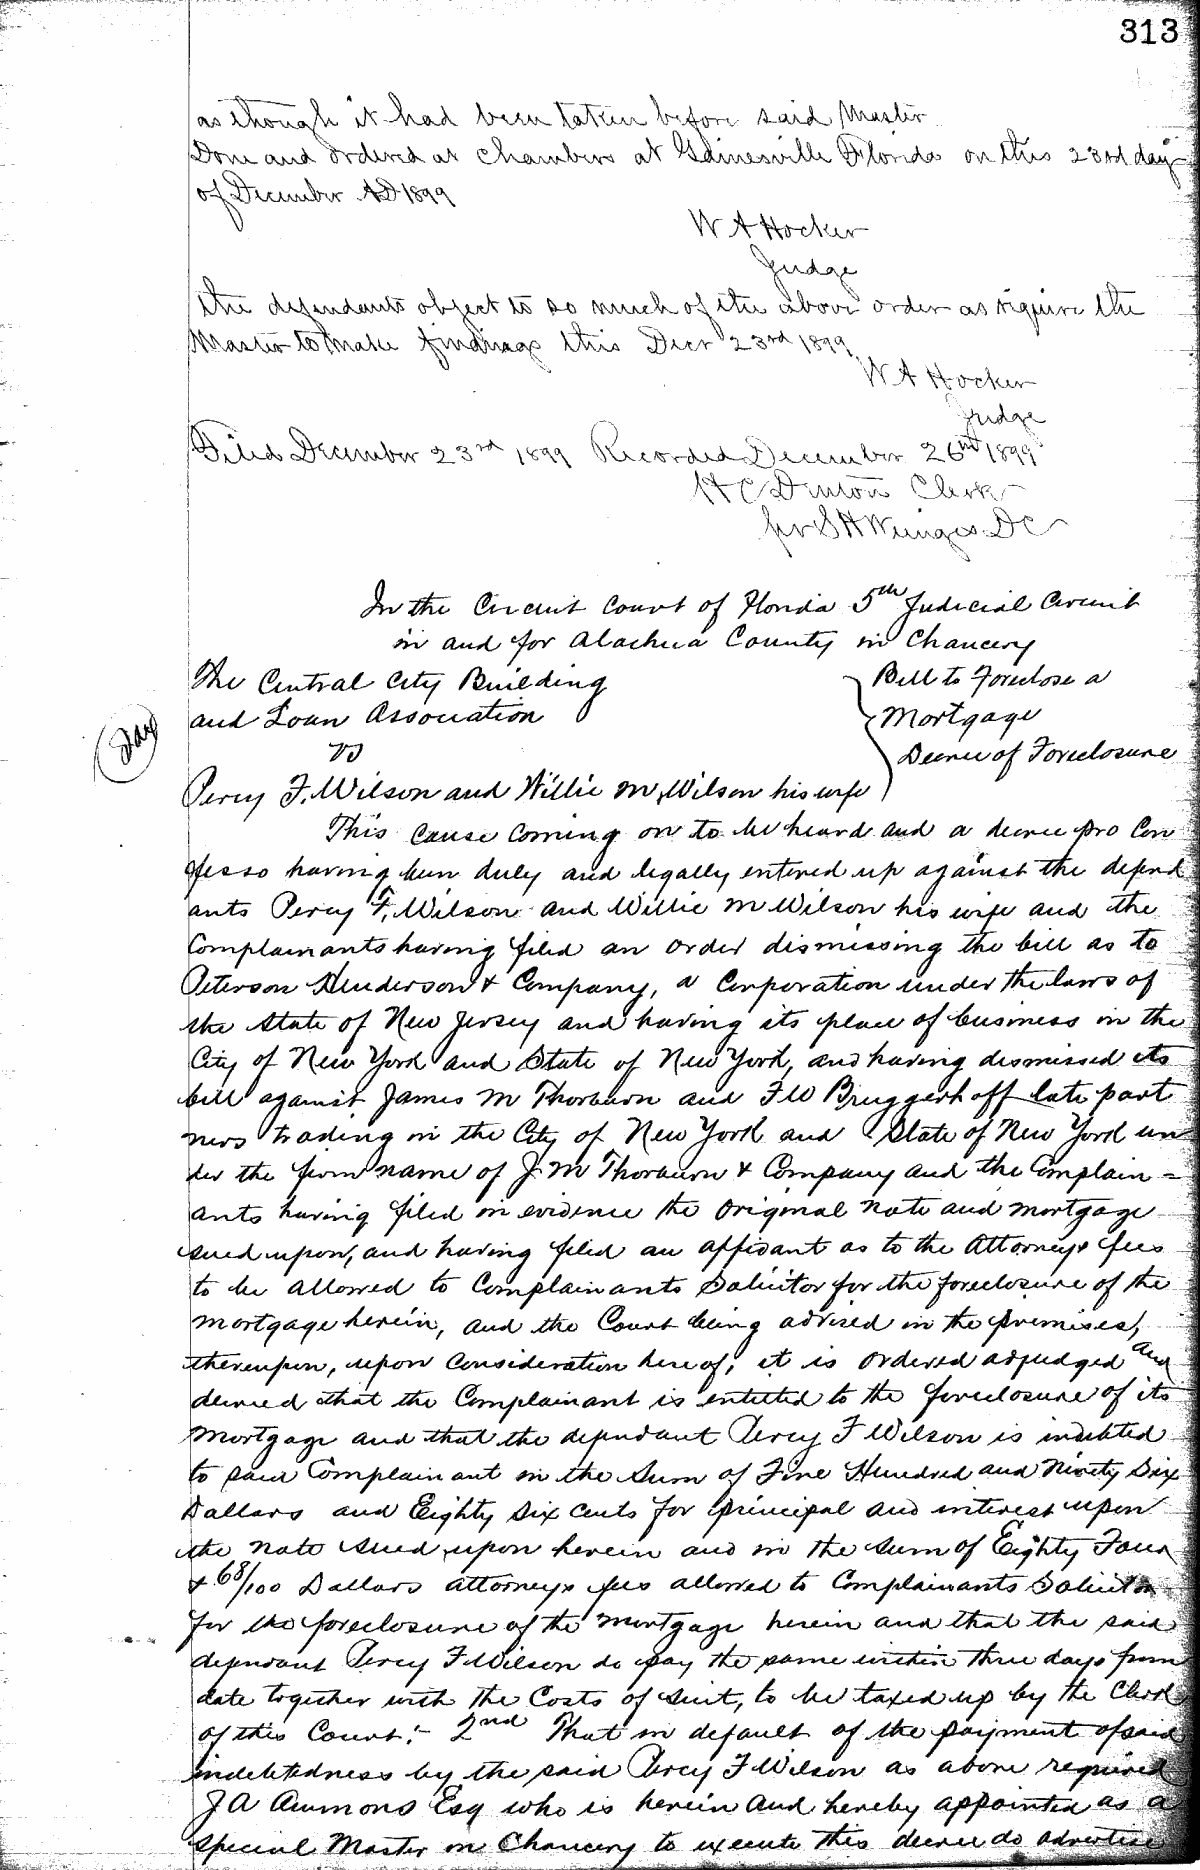 313
as though it had been taken before said Master
Done and ordered at chambers at Gainesville Florida on this 23rd day
of December AD 1899
W A Hocker
Judge
the defendants object to so much of the above order as require the
Master to make findings this Decr 23rd 1899
W A Hocker
Judge
Filed December 23rd 1899 Recorded December 26th 1899
H C Denton Clerk
per S H Wienges DC
In the Circuit Court of Florida 5th Judicial Circuit
in and for Alachua County in Chancery
The Central City Building
and Loan Association
vs
Percy F. Wilson and Willie M. Wilson his wife
Bill to Foreclose a
Mortgage
Decree of Foreclosure
This cause coming on to be heard and a decree pro Con
fesso having been duly and legally entered up against the defend
ants Percy F. Wilson and Willie M Wilson his wife and the
Complainants having filed an order dismissing the bill as to
Peterson Henderson & Company, a Corporation under the laws of
the State of New Jersey and having its place of business in the
City of New York and State of New York, and having dismissed its
bill against James M Thorburn and F W Bruggerhoff late part
ners trading in the City of New York and State of New York un
der the firm name of J. M Thorburn & Company and the Complain=
ants having filed in evidence the original note and mortgage
sued upon, and having filed an affidant as to the Attorneys fees
to be allowed to Complainants Solicitor for the foreclosure of the
mortgage herein, and the Court being advised in the premises,
thereupon, upon consideration hereof, it is ordered adjudged and
decreed that the Complainant is entitled to the foreclosure of its
mortgage and that the defendant Percy F Wilson is indebted
to said Complainant in the sum of Five Hundred and Ninety Six
Dollars and Eighty six cents for principal and interest upon
the note sued upon herein and in the sum of Eighty Four
& 68/100 Dollars attorneys fees allowed to Complainants Solicitor
for the foreclosure of the mortgage herein and that the said
defendant Percy F Wilson do pay the same within three days from
date together with the Costs of suit, to be taxed up by the Clerk
of this Court:- 2nd That in default of the payment of said
indebtedness by the said Percy F Wilson as above required
J A Ammons Esq who is herein and hereby appointed as a
special Master in Chancery to execute this decree do advertise